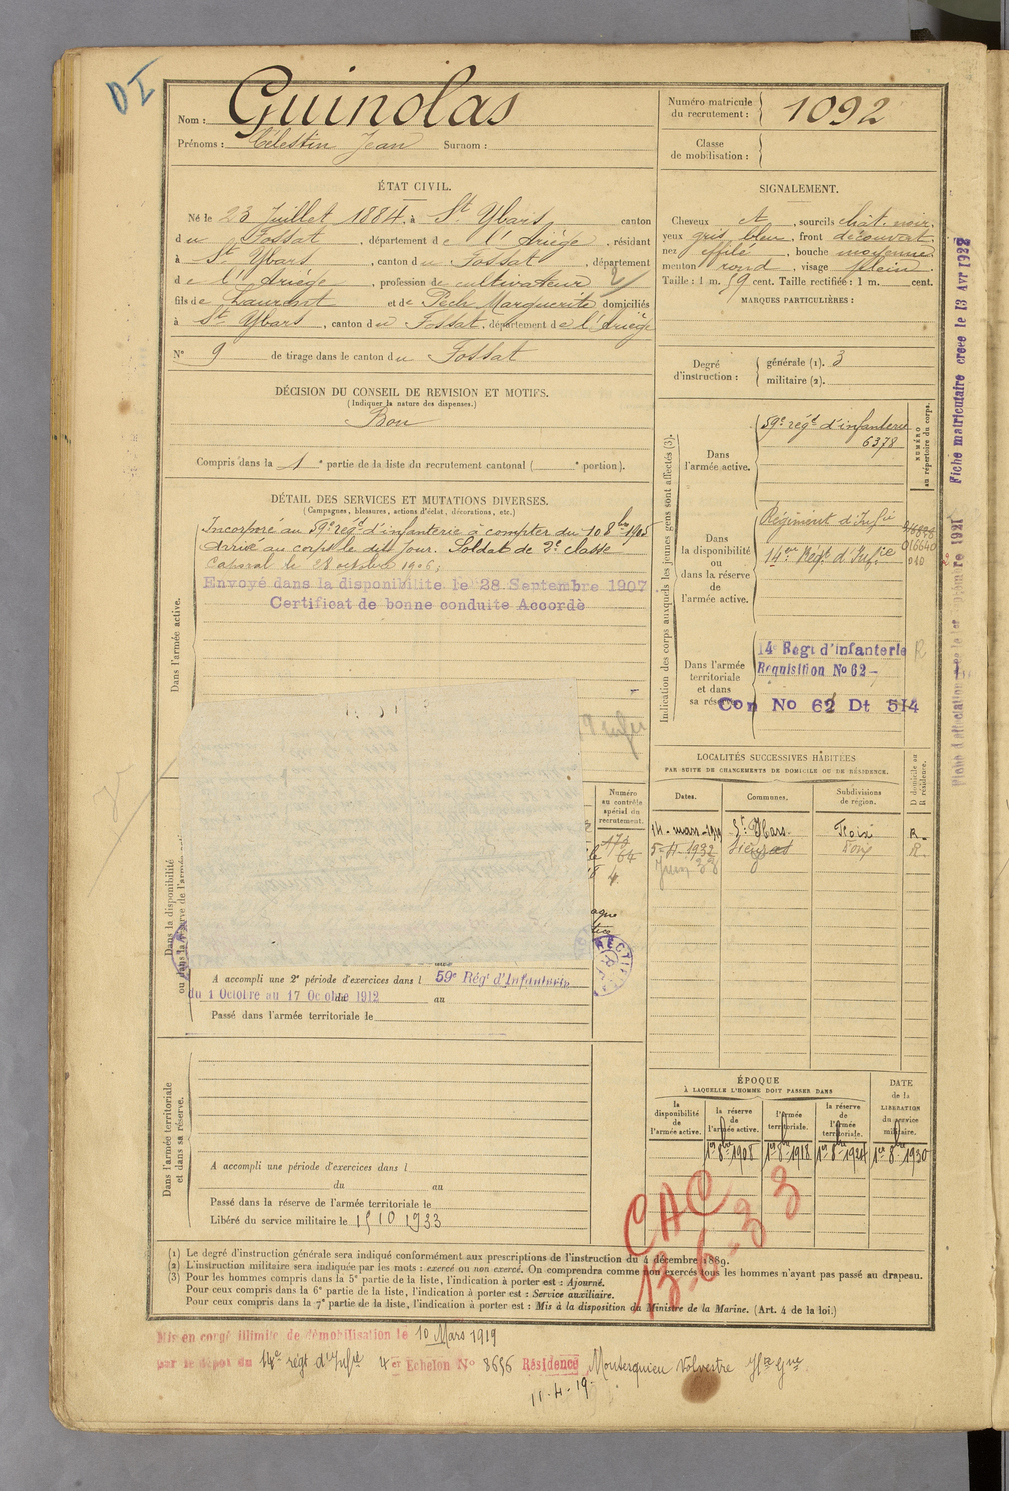 DI
Nom : Guinolas
Prénoms : Célestin Jean Surnom :
Numéro matricule du recrutement : 1092
Classe de mobilisation :
ÉTAT CIVIL.
Né le 23 Juillet 1884, à St Ybars, canton
du Fossat, département de l'Ariège, résidant
à St Ybars, canton du Fossat, département
de l'Ariège, profession de cultivateur
fils de Laurent et de Pech Marguerite domiciliés
à St Ybars, canton du Fossat, département de l'Ariège
N° 9 de tirage dans le canton du Fossat
SIGNALEMENT.
Cheveux , sourcils chât. noir,
yeux gris bleu, front découvert,
nez effilé, bouche moyenne
menton rond, visage plein.
Taille : 1 m. 59 cent. Taille rectifiée : 1 m. cent.
MARQUES PARTICULIÈRES :
Degré d'instruction : générale (1). 3
militaire (2).
DÉCISION DU CONSEIL DE REVISION ET MOTIFS.
(Indiquer la nature des dispenses.)
Bon
Compris dans la 1e partie de la liste du recrutement cantonal ( e portion).
DÉTAIL DES SERVICES ET MUTATIONS DIVERSES.
(Campagnes, blessures, actions d'éclat, décorations, etc.)
Incorporé au 59e régt d'infanterie à compter du 10 8bre 1905
Arrivé au corps le dit Jour. Soldat de 2e classe
Caporal le 28 octobre 1906;
Envoyé dans la disponibilité le 28 Septembre 1907
Certificat de bonne conduite Accordé
Dans l'armée active.
Indication des corps auxquels les jeunes gens sont affectés (3).
NUMÉRO au répertoire du corps.
Dans l'armée active.
59e régt d'infanterie
6378
Dans la disponibilité ou dans la réserve de l'armée active.
Régiment d'Infie
14e Régt d'Infie
016640
010
Dans l'armée territoriale et dans sa réserve.
14e Regt d'infanterie R
Réquisition No 62 -
Con No 62 Dt 514
Fiche matriculaire créée le 13 Avr 1922
LOCALITÉS SUCCESSIVES HABITÉES
PAR SUITE DE CHANGEMENTS DE DOMICILE OU DE RÉSIDENCE.
D domicile ou R résidence.
Dates. Communes. Subdivisions de région.
14-mars-1919 St Ybars. Foix R.
5-4-1932 Foix R
Juin 33
Numéro au contrôle spécial du recrutement.
173
64
4
Dans la disponibilité ou dans la réserve de l'armée
A accompli une 2e période d'exercices dans l 59e Régt d'Infanterie
du 1 Octobre au 17 Octobre 1912 au
Passé dans l'armée territoriale le
RECTIF
Dans l'armée territoriale et dans sa réserve.
A accompli une période d'exercices dans l
du au
Passé dans la réserve de l'armée territoriale le
Libéré du service militaire le 15 10 1933
ÉPOQUE
À LAQUELLE L'HOMME DOIT PASSER DANS
DATE de la LIBÉRATION du service militaire.
la disponibilité de l'armée active.
la réserve de l'armée active.
l'armée territoriale.
la réserve de l'armée territoriale.
1er 8bre 1908 1er 8bre 1918 1er 8bre 1924 1er 8bre 1930
CAC
13-6-33
(1) Le degré d'instruction générale sera indiqué conformément aux prescriptions de l'instruction du 4 décembre 1889.
(2) L'instruction militaire sera indiquée par les mots : exercé ou non exercé. On comprendra comme non exercés tous les hommes n'ayant pas passé au drapeau.
(3) Pour les hommes compris dans la 5e partie de la liste, l'indication à porter est : Ajourné.
Pour ceux compris dans la 6e partie de la liste, l'indication à porter est : Service auxiliaire.
Pour ceux compris dans la 7e partie de la liste, l'indication à porter est : Mis à la disposition du Ministre de la Marine. (Art. 4 de la loi.)
Mis en congé illimité de démobilisation le 10 Mars 1919
par le dépôt du 14e régt d'Infie 4er Echelon No 8656 Résidence Montesquieu Volvestre Hte Gne
11-4-19